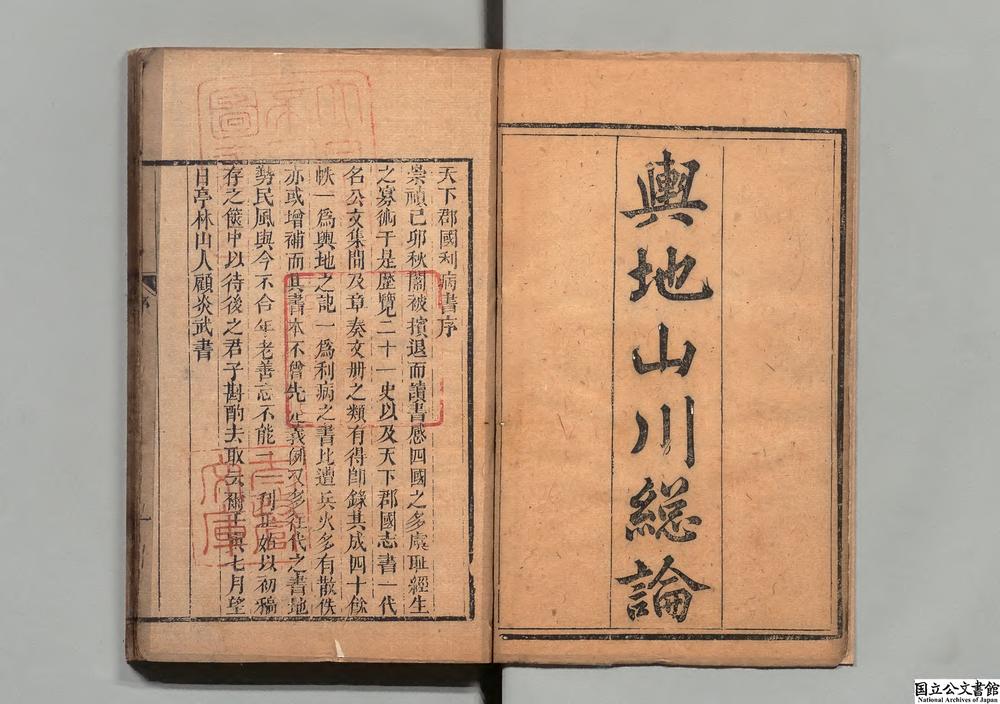 輿地山川総論
天下郡國利病書序
崇禎己卯秋闈被擯退而讀書感四國之多虞恥經生
之寡術于是歷覽二十一史以及天下郡國志書一代
名公文集間及章奏文册之類有得卽錄共成四十餘
帙一爲輿地之記一爲利病之書比遭兵火多有散佚
亦或增補而其書本不曾先定義例又多往代之書地
勢民風與今不合年老善忘不能一一刊正姑以初稿
存之篋中以待後之君子斟酌去取云爾壬寅七月望
日亭林山人顧炎武書
文庫
国立公文書館
National Archives of Japan